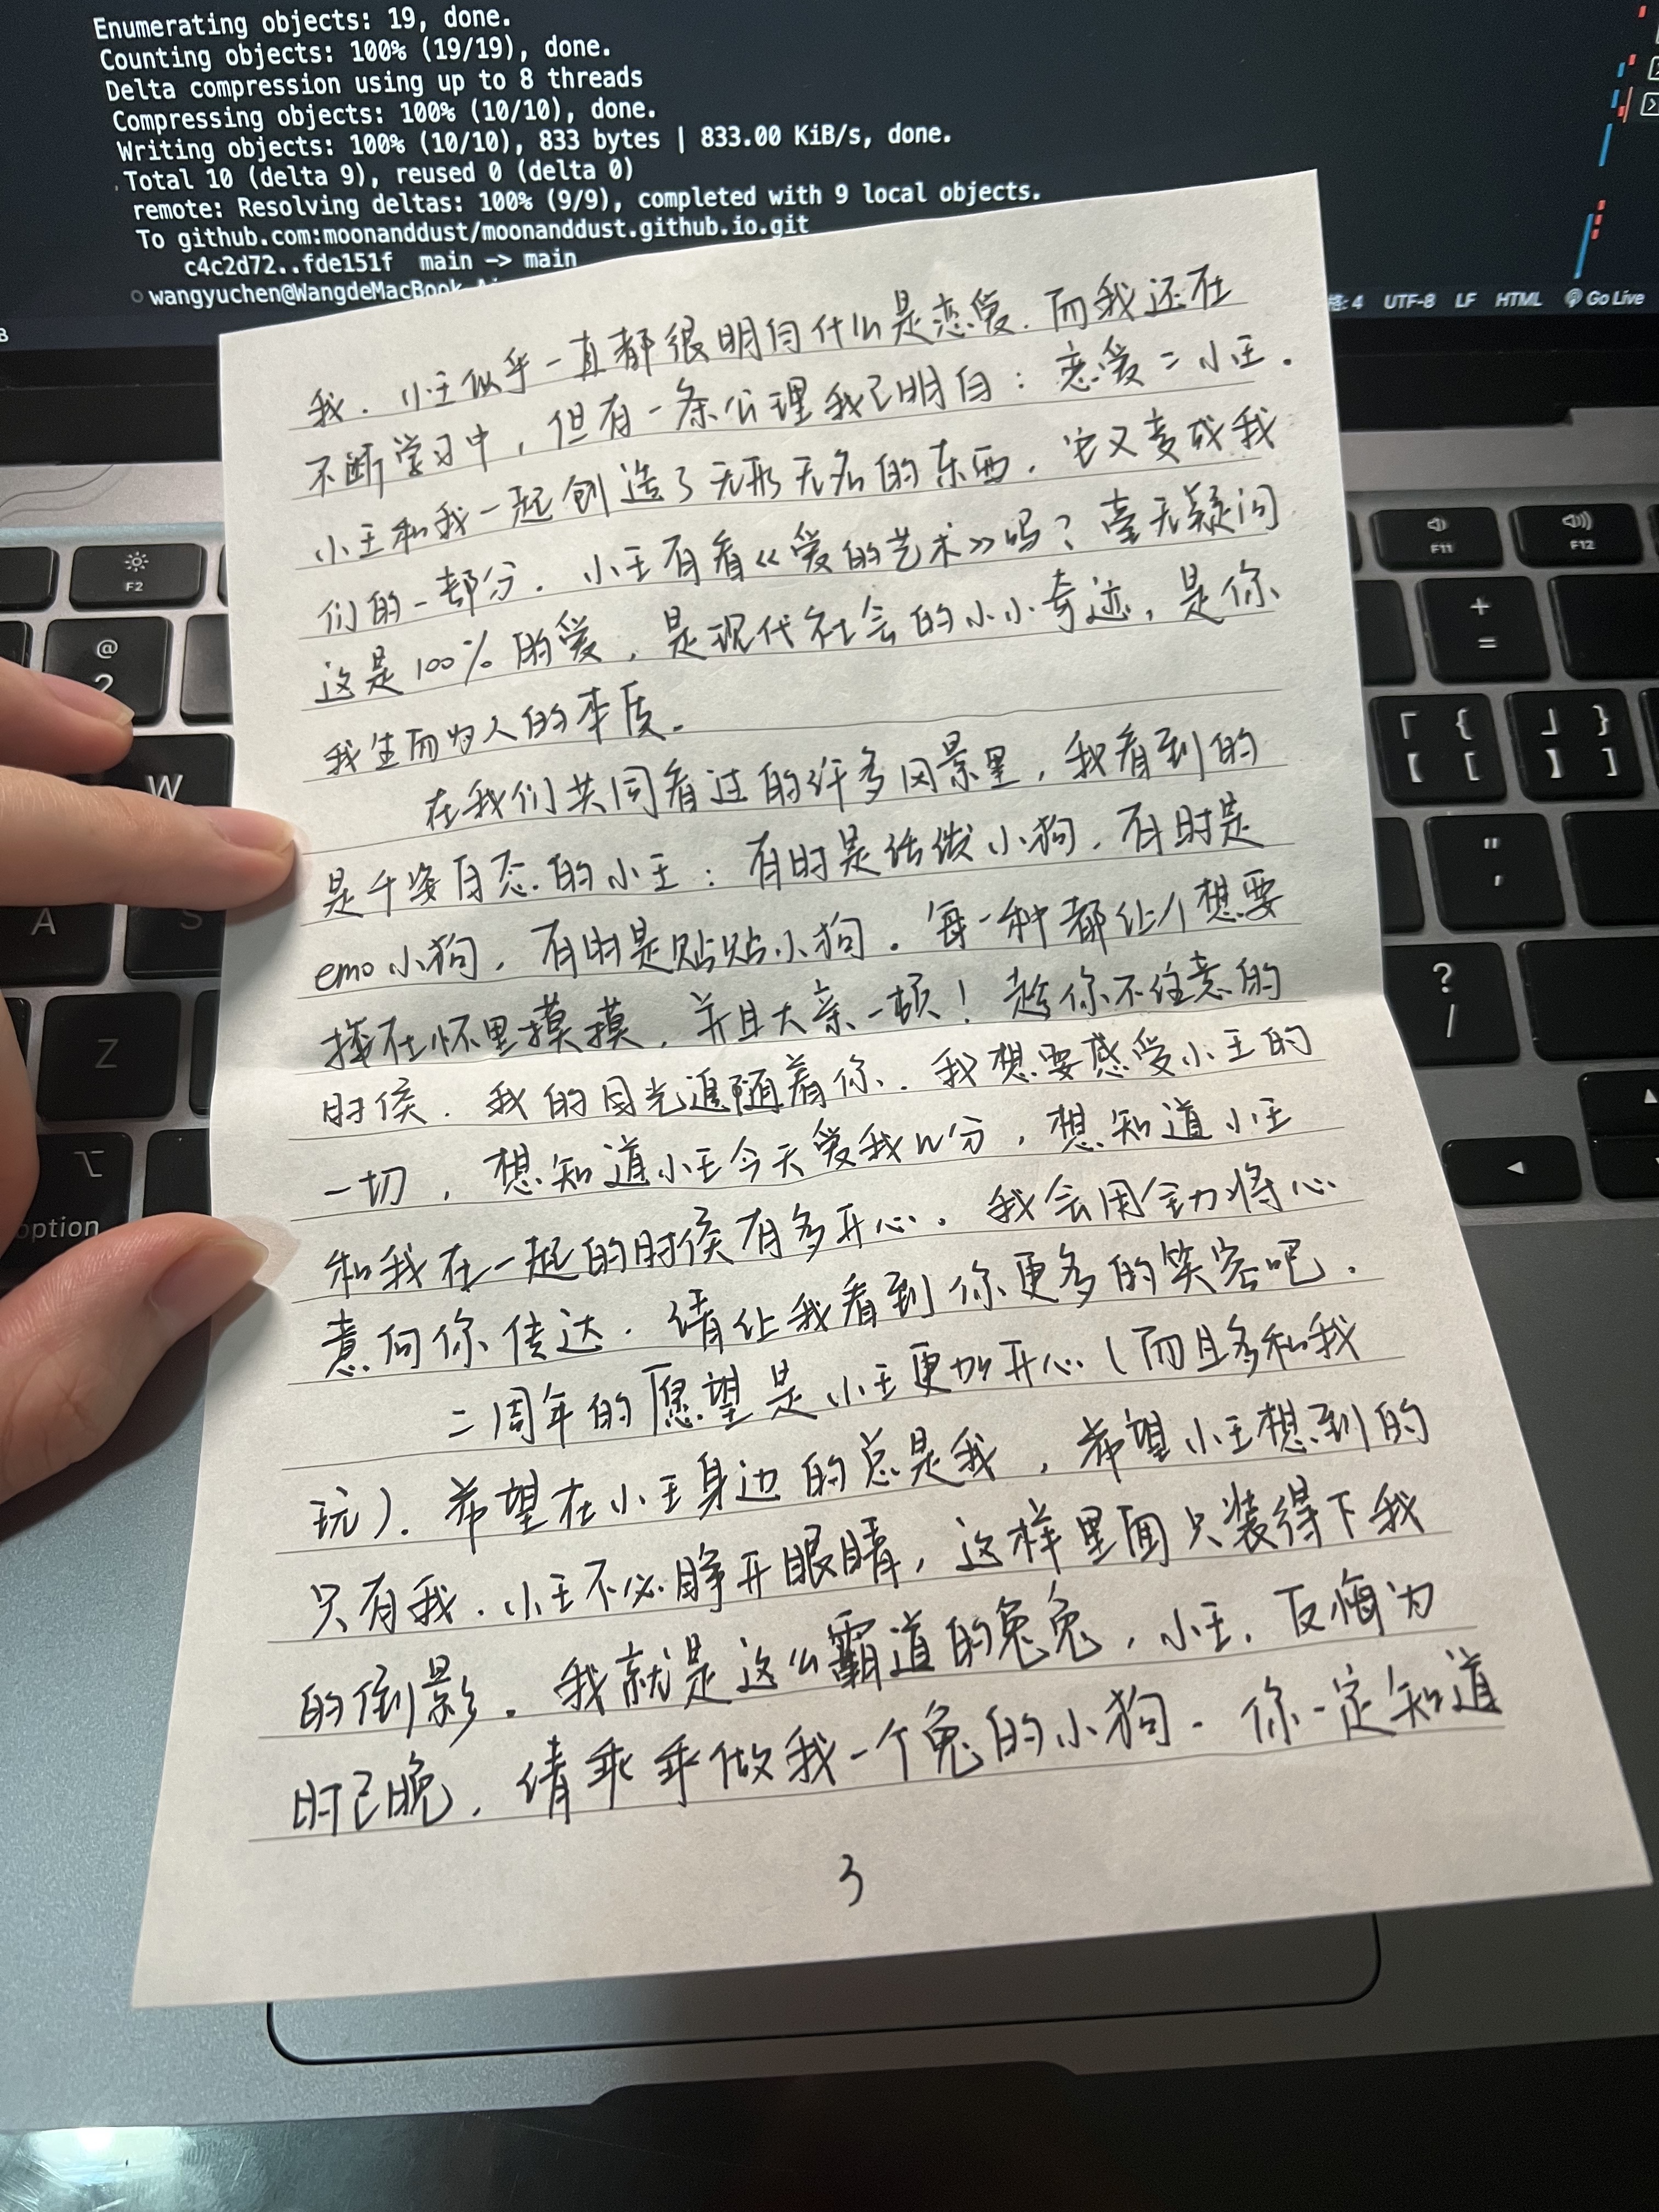 Enumerating objects: 19, done.
Counting objects: 100% (19/19), done.
Delta compression using up to 8 threads
Compressing objects: 100% (10/10), done.
Writing objects: 100% (10/10), 833 bytes | 833.00 KiB/s, done.
Total 10 (delta 9), reused 0 (delta 0)
remote: Resolving deltas: 100% (9/9), completed with 9 local objects.
To github.com:moonanddust/moonanddust.github.io.git
c4c2d72..fde151f main -> main
wangyuchen@WangdeMacBook
4 UTF-8 LF HTML Go Live
我. 小王似乎一直都很明白什么是恋爱. 而我还在
不断学习中, 但有一条公理我已明白: 恋爱=小王.
小王和我一起创造了无形无名的东西. 它又变成我
们的一部分. 小王有看《爱的艺术》吗? 毫无疑问
这是100%的爱, 是现代社会的小小奇迹, 是你
我生而为人的本质.
在我们共同看过的许多风景里, 我看到的
是千姿百态的小王: 有时是活泼小狗, 有时是
emo小狗, 有时是贴贴小狗. 每一种都让人想要
搂在怀里摸摸, 并且大亲一顿! 趁你不注意的
时候. 我的目光追随着你. 我想要感受小王的
一切, 想知道小王今天爱我几分, 想知道小王
和我在一起的时候有多开心. 我会用全力将心
意向你传达. 请让我看到你更多的笑容吧.
二周年的愿望是小王更加开心(而且多和我
玩). 希望在小王身边的总是我, 希望小王想到的
只有我. 小王不必睁开眼睛, 这样里面只装得下我
的倒影. 我就是这么霸道的兔兔, 小王, 反悔为
时已晚, 请乖乖做我一个兔的小狗. 你一定知道
3
F2
F11
F12
@
2
W
A
S
Z
option
+
=
「 {
【 [
」 }
】 ]
"
'
?
/